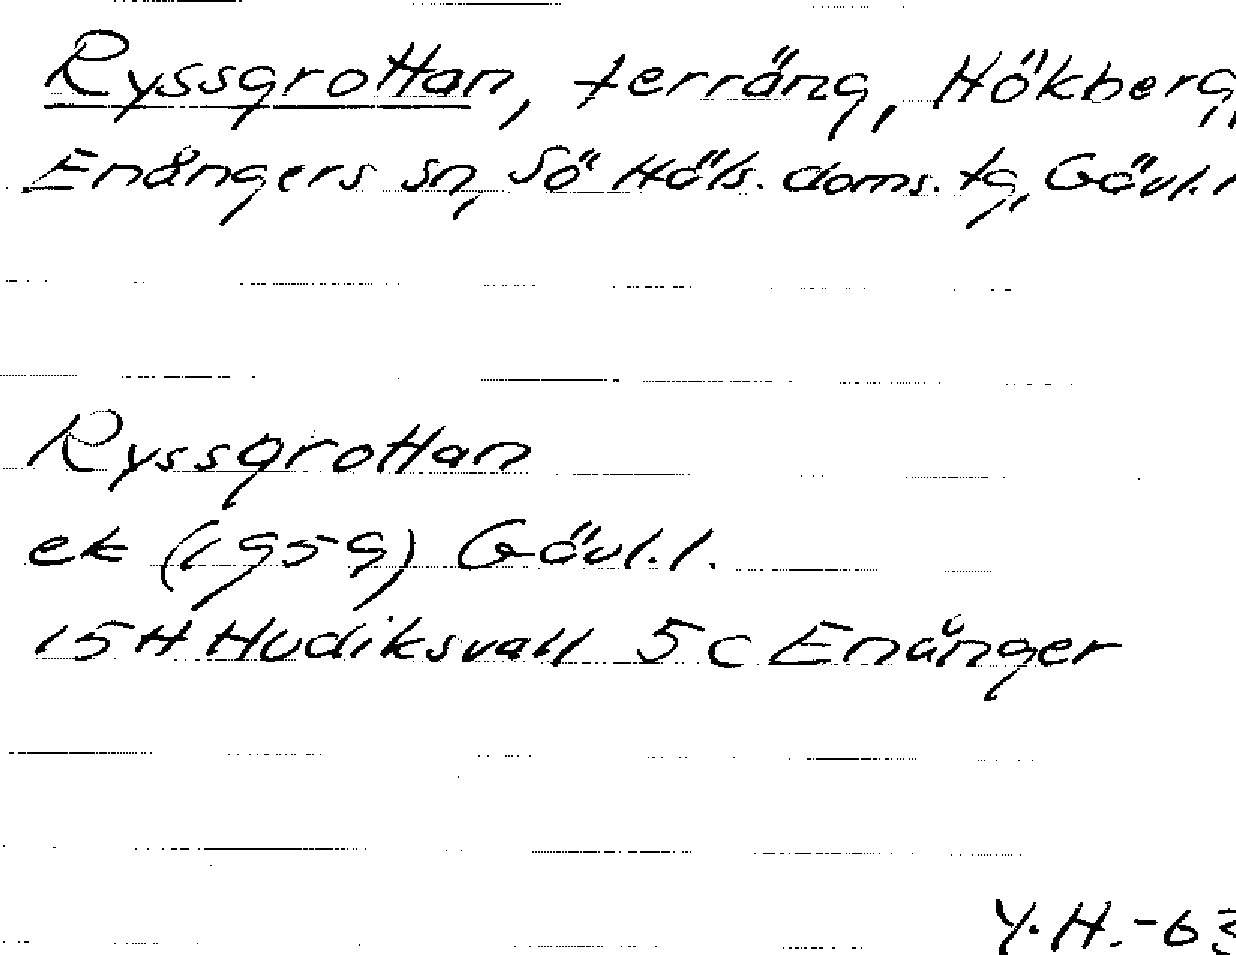 Ryssgrottan, terräng, Hökberg,
Enångers sn, Sö Häls. doms. tg, Gävl. l
Ryssgrottan
ek (1959) Gävl. l.
15 H Hudiksvall 5 c Enånger
Y. H. -63